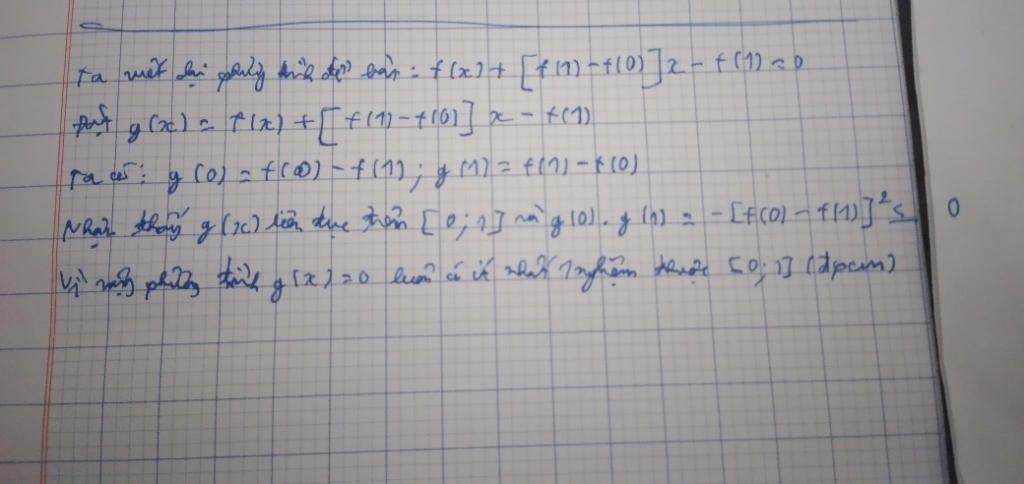 Ta viết lại phương trình đã cho: f(x) + [f(1) - f(0)]x - f(1) = 0
Đặt g(x) = f(x) + [f(1) - f(0)] x - f(1)
Ta có: g(0) = f(0) - f(1); g(1) = f(1) - f(0)
Nhận thấy g(x) liên tục trên [0; 1] và g(0). g(1) = - [f(0) - f(1)]² ≤ 0
Vì vậy phương trình g(x) = 0 luôn có ít nhất 1 nghiệm thuộc [0; 1] (đpcm)